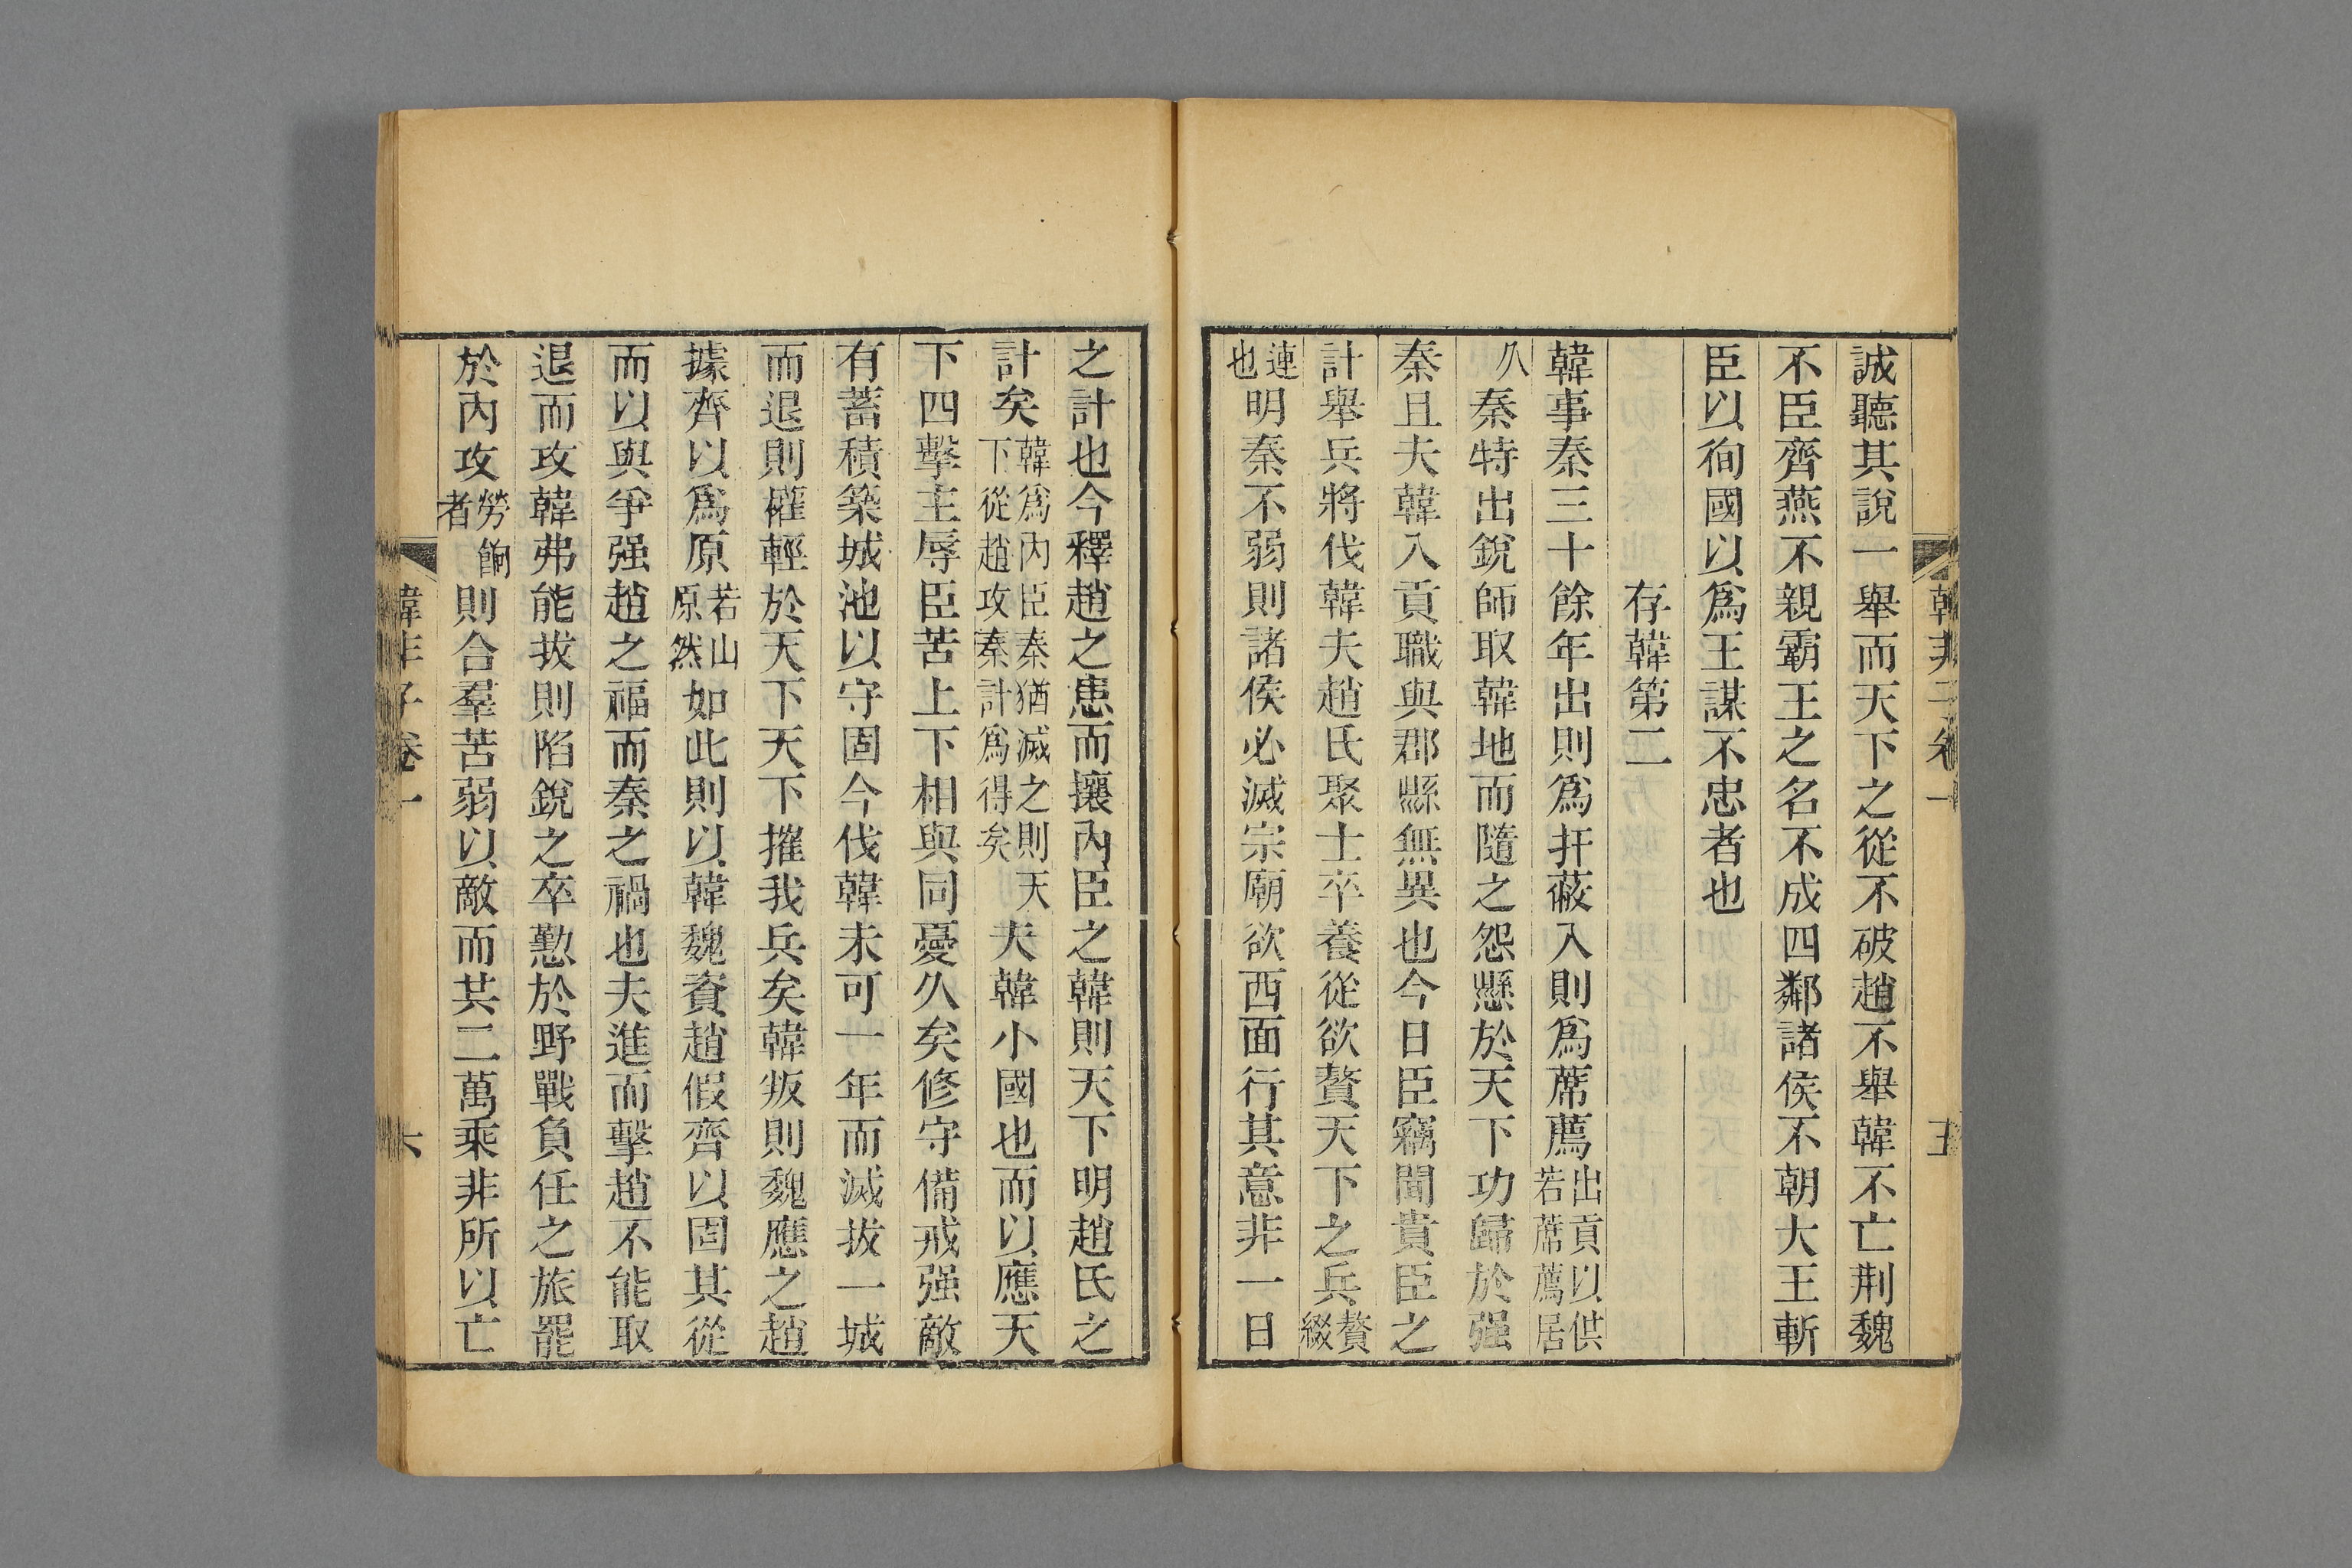 韓非子卷一
五
誠聽其說一舉而天下之從不破趙不舉韓不亡荆魏
不臣齊燕不親霸王之名不成四鄰諸侯不朝大王斬
臣以徇國以爲王謀不忠者也
存韓第二
韓事秦三十餘年出則爲扞蔽入則爲蓆薦出貢以供若蓆薦居
久秦特出銳師取韓地而隨之怨懸於天下功歸於强
秦且夫韓入貢職與郡縣無異也今日臣竊聞貴臣之
計舉兵將伐韓夫趙氏聚士卒養從欲贅天下之兵贅綴
連也明秦不弱則諸侯必滅宗廟欲西面行其意非一日
之計也今釋趙之患而攘內臣之韓則天下明趙氏之
計矣韓爲內臣秦猶滅之則天下從趙攻秦計爲得矣夫韓小國也而以應天
下四擊主辱臣苦上下相與同憂久矣修守備戒强敵
有蓄積築城池以守固今伐韓未可一年而滅拔一城
而退則權輕於天下天下摧我兵矣韓叛則魏應之趙
據齊以爲原若山原然如此則以韓魏資趙假齊以固其從
而以與爭强趙之福而秦之禍也夫進而擊趙不能取
退而攻韓弗能拔則陷銳之卒懃於野戰負任之旅罷
於內攻勞餉者則合羣苦弱以敵而共二萬乘非所以亡
韓非子卷一
六